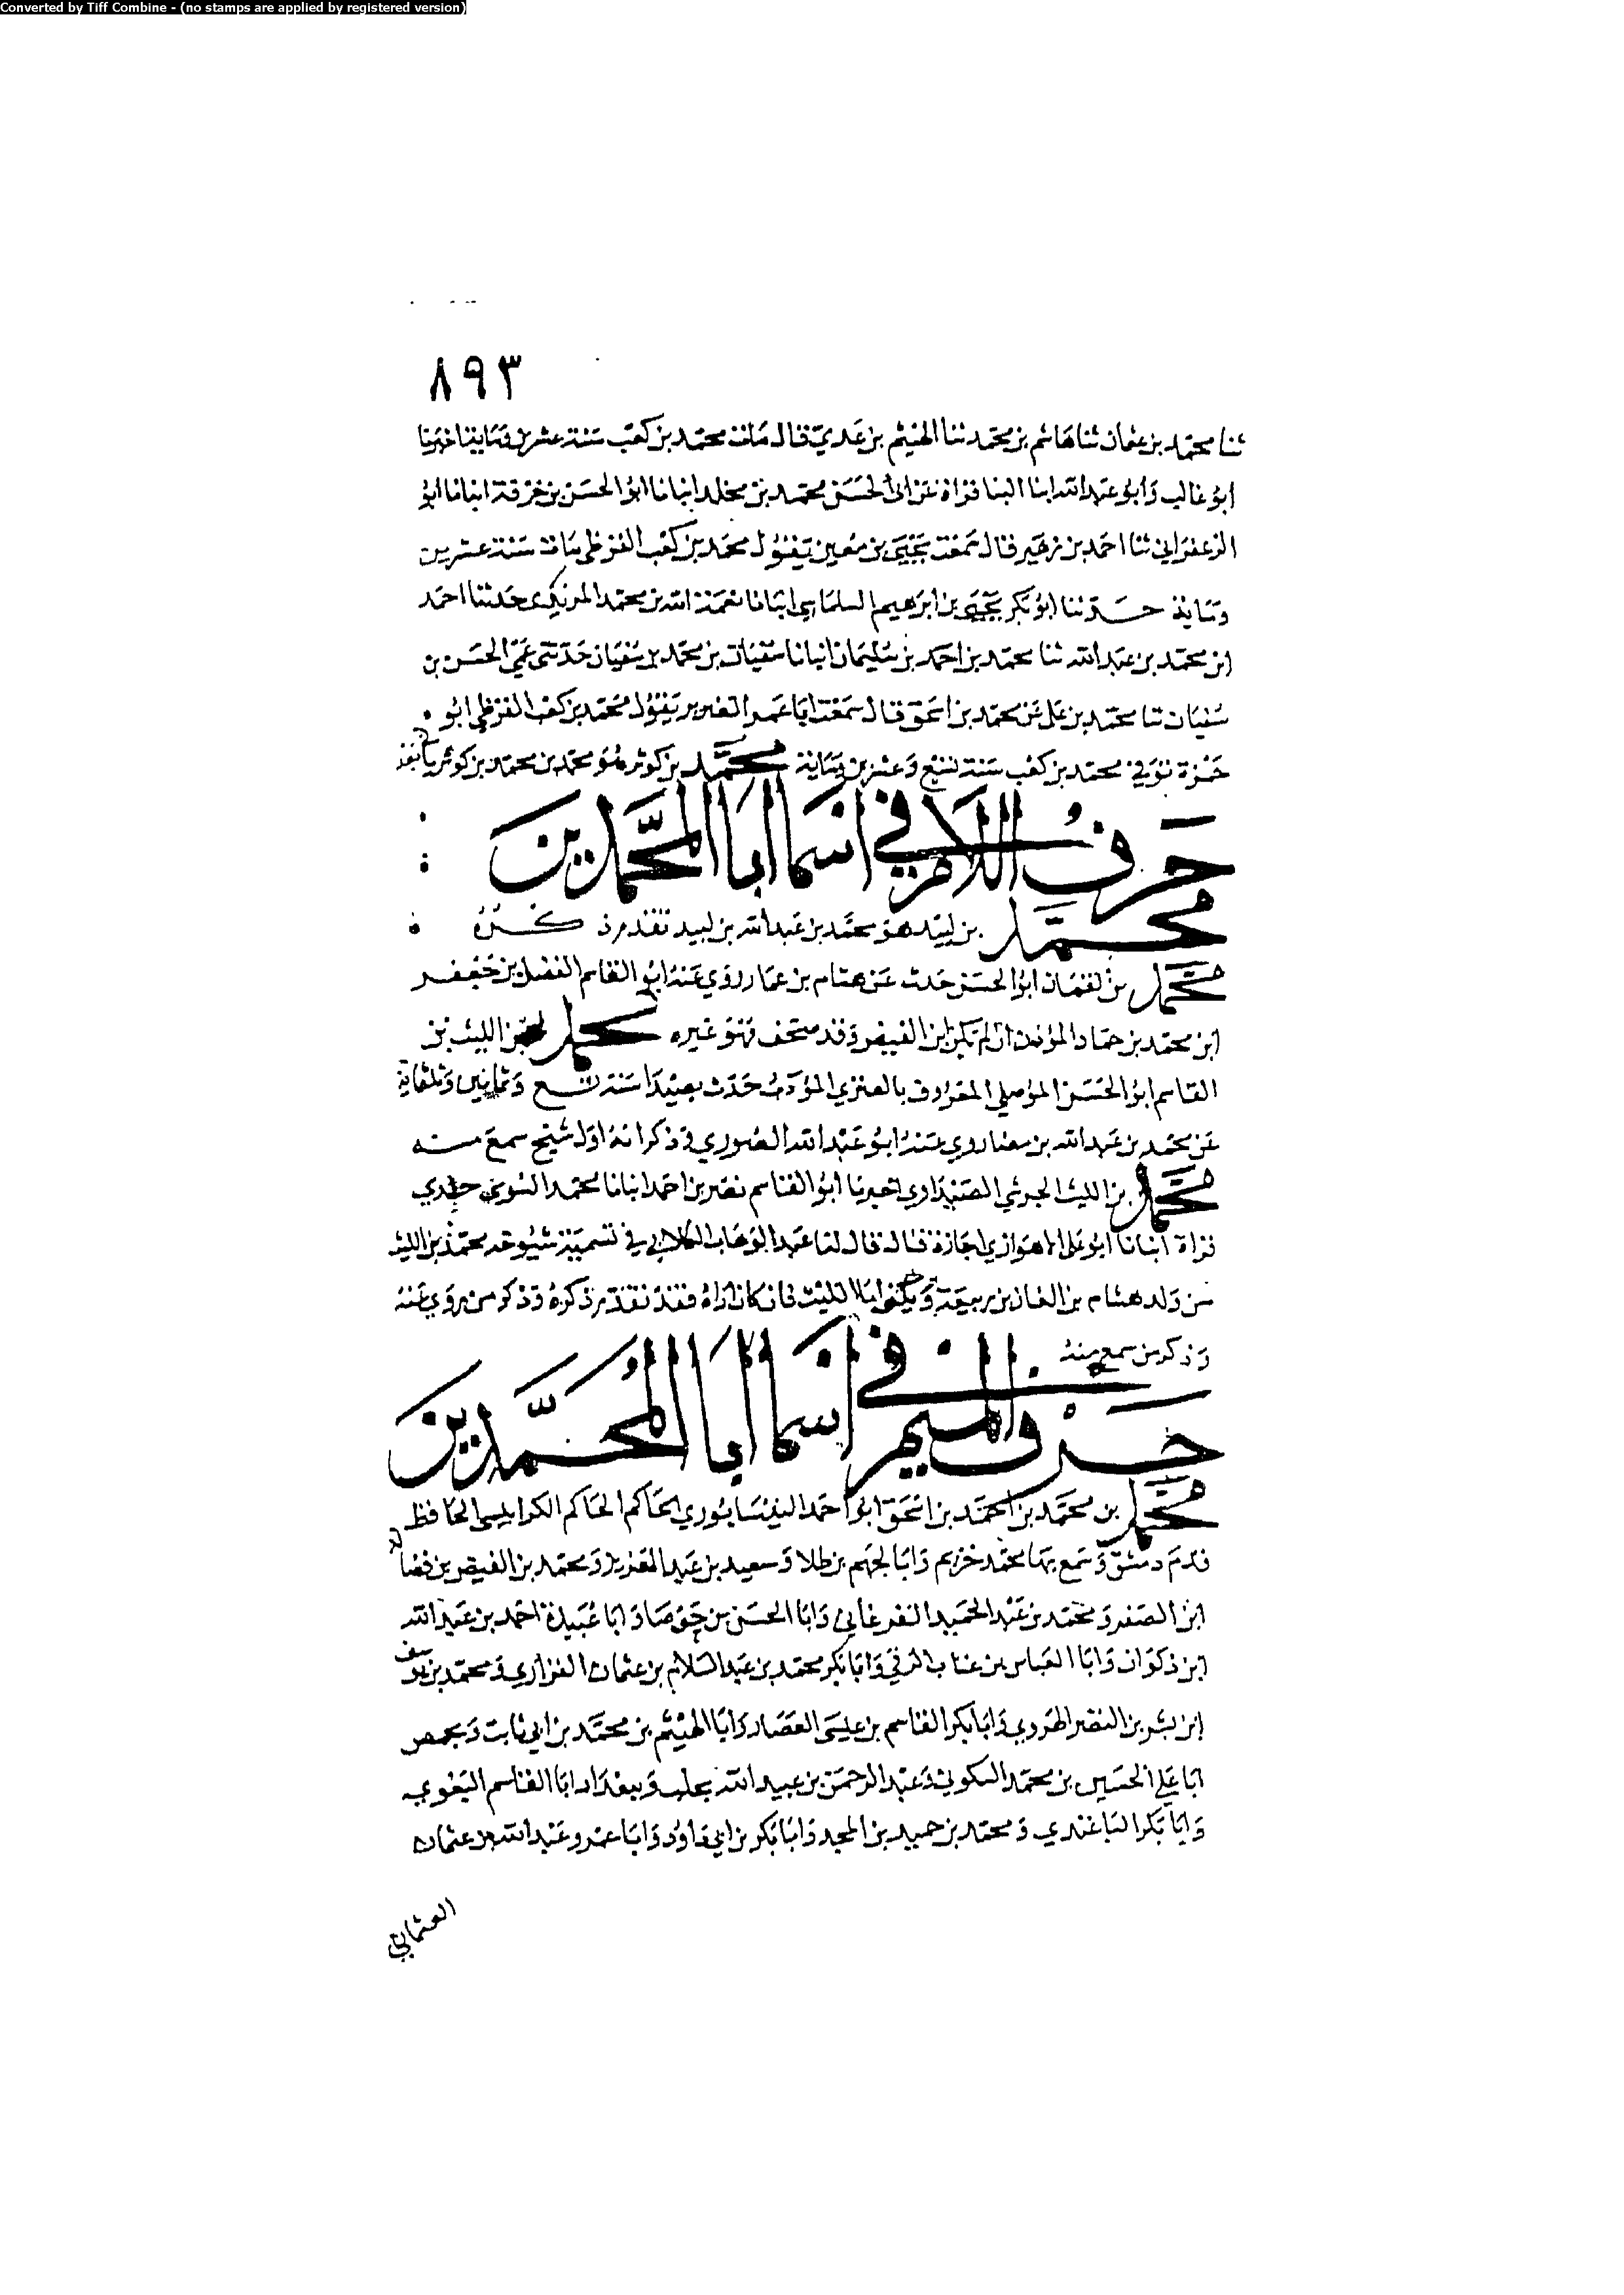 Converted by Tiff Combine - (no stamps are applied by registered version)
٨٩٣
ثنا محمد بن عثمان ثنا هاشم بن محمد ثنا الهيثم بن عدي قال مات محمد بن كعب سنة عشرين ومايه اخبرنا
ابو غالب وابو عبد الله ابنا البنا قراة عن ابي الحسن محمد بن مخلد انبانا ابو الحسن بن خزفة انبانا ابو
الزعفراني ثنا احمد بن زهير قال سمعت يحيى بن معين يقول محمد بن كعب القرظي مات سنة عشرين
ومايه حدثنا ابو بكر يحيى بن ابرهيم السلماسي انبانا نعمة الله بن محمد المرندي حدثنا احمد
ابن محمد بن عبد الله ثنا محمد بن احمد بن سليمان انبانا سفيان بن محمد بن سفيان حدثني عمي الحسن بن
سفيان ثنا محمد بن علي عن محمد بن اسحق قال سمعت ابا عمر الضرير يقول محمد بن كعب القرظي ابو
حمزة توفي محمد بن كعب سنة تسع وعشرين ومايه محمد بن كوثر هو محمد بن محمد بن كوثر ياتي بعد
حرف اللام في اسما ابا المحمدين
محمد بن لبيد هو محمد بن عبد الله بن لبيد تقدم ذكره
محمد بن لقمان ابو الحسن حدث عن هشام بن عمار روى عنه ابو القاسم الفضل بن جعفر
ابن محمد بن حماد المؤذن ان لم يكن ابن الفيض وقد صحف فهو غيره محمد بن الليث بن
القاسم ابو الحسن الموصلي المعروف بالعنزي المؤدب حدث بصيدا سنة تسع وثمانين وثلثماية
عن محمد بن عبد الله بن روى عنه ابو عبد الله الصوري وذكر انه اول شيخ سمع منه
محمد بن الليث الجرشي الصيداوي اخبرنا ابو القاسم نصر بن احمد انبانا محمد السوسي جدي
قراة انبانا ابو علي الاهوازي اجازة قال قال لنا عبد الوهاب الكلابي في تسمية شيوخه محمد بن الليث
من ولد هشام بن الغاز بن ربيعة ويكنى ابا الليث فان كان اراه فقد تقدم ذكره وذكر من يروي عنه
وذكر من سمع منه
حرف الميم في اسما ابا المحمدين
محمد بن محمد بن احمد بن اسحق ابو احمد النيسابوري الحاكم الحاكم الكرابيسي الحافظ
قدم دمشق وسمع بها محمد خزيم وابا الجهم بن طلاب وسعيد بن عبد العزيز ومحمد بن الفيض بن فضالة
ابن الصقر ومحمد بن عبد الحميد الفرغاني وابا الحسن بن جوصا وابا عبيدة احمد بن عبد الله
ابن ذكوان وابا العباس بن عتاب الزفتي وابا بكر محمد بن عبد السلام بن عثمان الفزاري ومحمد بن يوسف
ابن بشر بن النضر الهروي وابا بكر القاسم بن عيسى العصار وابا الهيثم بن محمد بن ابي ثابت وبحمص
ابا علي الحسين بن محمد السكوني وعبد الرحمن بن عبيد الله بحلب وببغداد ابا القاسم البغوي
وابا بكر الباغندي ومحمد بن حميد بن المجدر وابا بكر بن ابي داود وابا عمرو عبد الله بن عثمان
العثماني